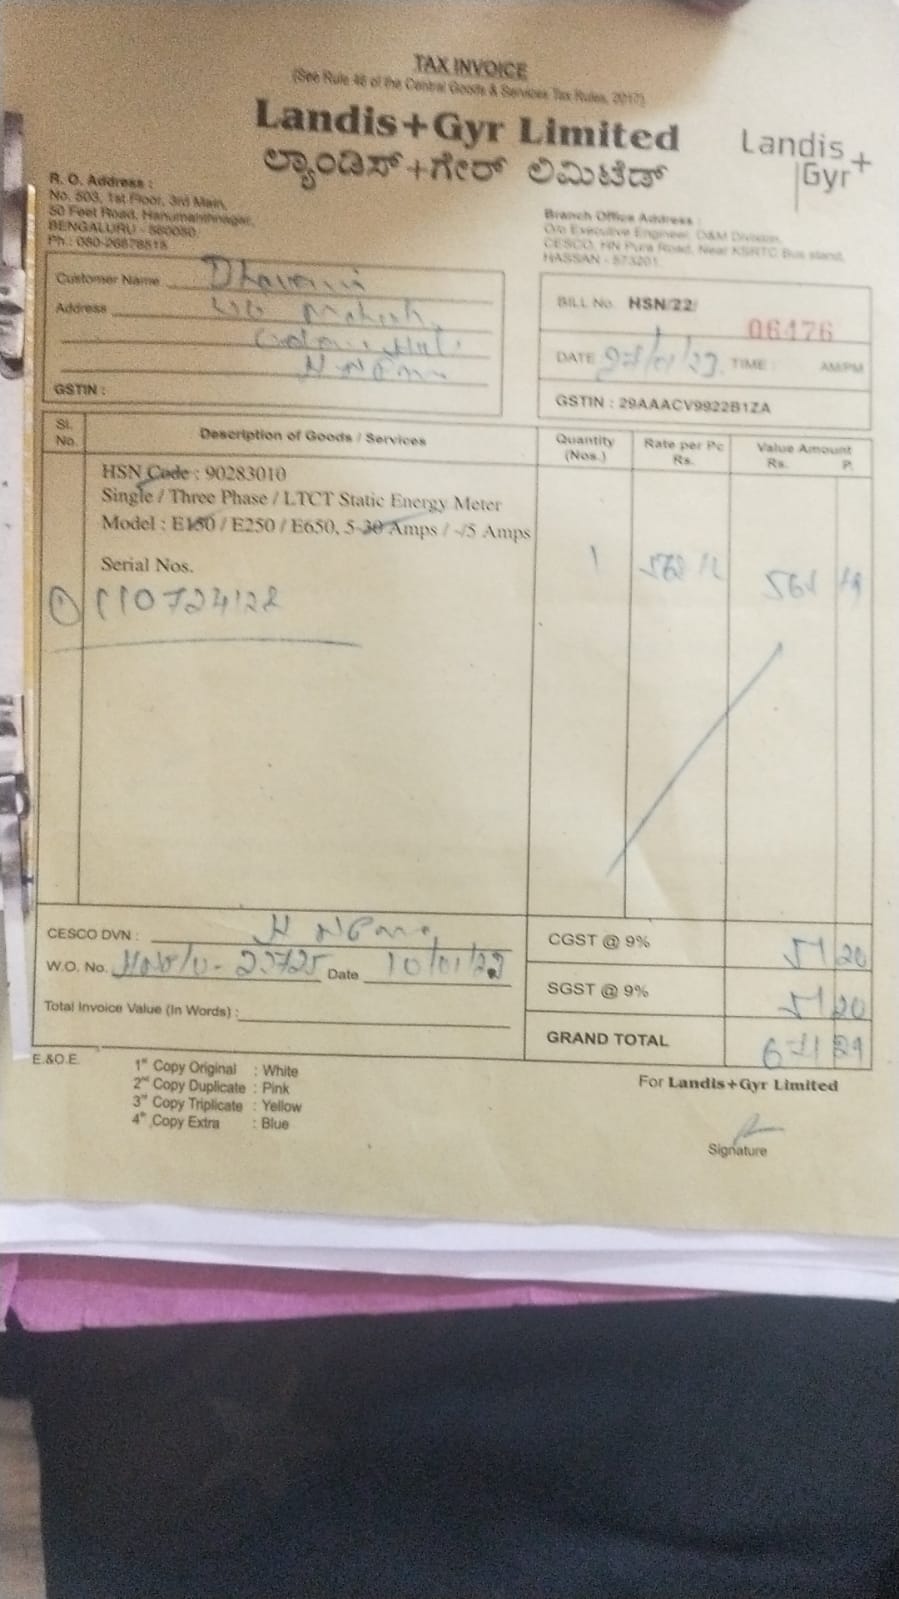 TAX INVOICE
(See Rule 46 of the Central Goods & Services Tax Rules, 2017)
Landis+Gyr Limited
ಲ್ಯಾಂಡಿಸ್+ಗೇರ್ ಲಿಮಿಟೆಡ್
Landis+Gyr
R. O. Address :
No. 503, 1st Floor, 3rd Main,
50 Feet Road, Hanumanthnagar,
BENGALURU - 560050.
Ph.: 080-26676515
Branch Office Address :
O/o Executive Engineer, O&M Division,
CESCO, HN Pura Road, Near KSRTC Bus stand,
HASSAN - 573201.
Customer Name
Address
GSTIN :
BILL No. HSN/22/ 06476
DATE TIME : AM/PM
GSTIN : 29AAACV9922B1ZA
Sl. No. Description of Goods / Services Quantity (Nos.) Rate per Pc Rs. Value Amount Rs. P.
HSN Code : 90283010
Single / Three Phase / LTCT Static Energy Meter
Model : E150 / E250 / E650, 5-30 Amps / -/5 Amps
Serial Nos. 1
CESCO DVN :
W.O. No. Date 10/01/
Total Invoice Value (In Words) :
CGST @ 9% 51 20
SGST @ 9% 51 20
GRAND TOTAL
E.&O.E.
1st Copy Original : White
2nd Copy Duplicate : Pink
3rd Copy Triplicate : Yellow
4th Copy Extra : Blue
For Landis+Gyr Limited
Signature